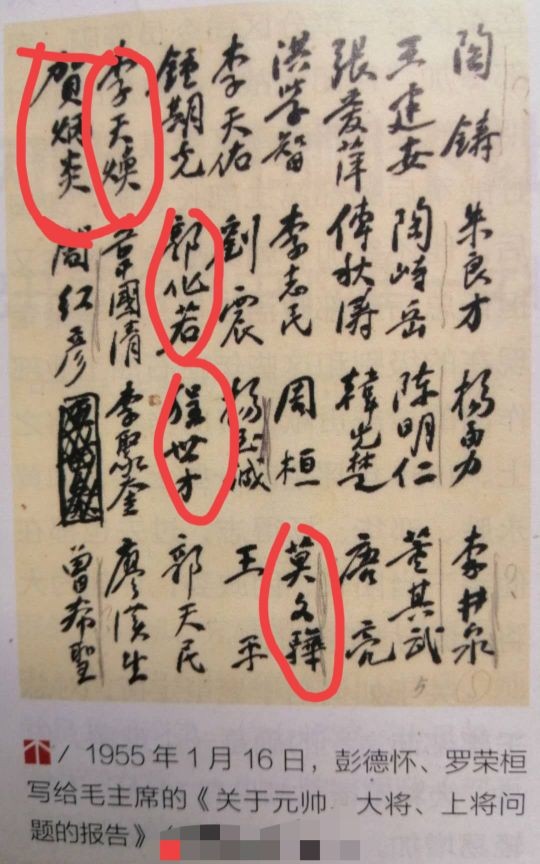 陶鑄 朱良才 楊勇 李井泉
王建安 陶峙岳 陈明仁 董其武
張愛萍 傅秋濤 韓先楚 唐亮
洪學智 李志民 周桓 莫文驊
李天佑 劉震 楊至誠 王平
鍾期光 郭化若 程世才 郭天民
李天煥 韋國清 李聚奎 廖漢生
賀炳炎 閻红彦 曾希聖
5
/ 1955年1月16日，彭德怀、罗荣桓
写给毛主席的《关于元帅、大将、上将问
题的报告》